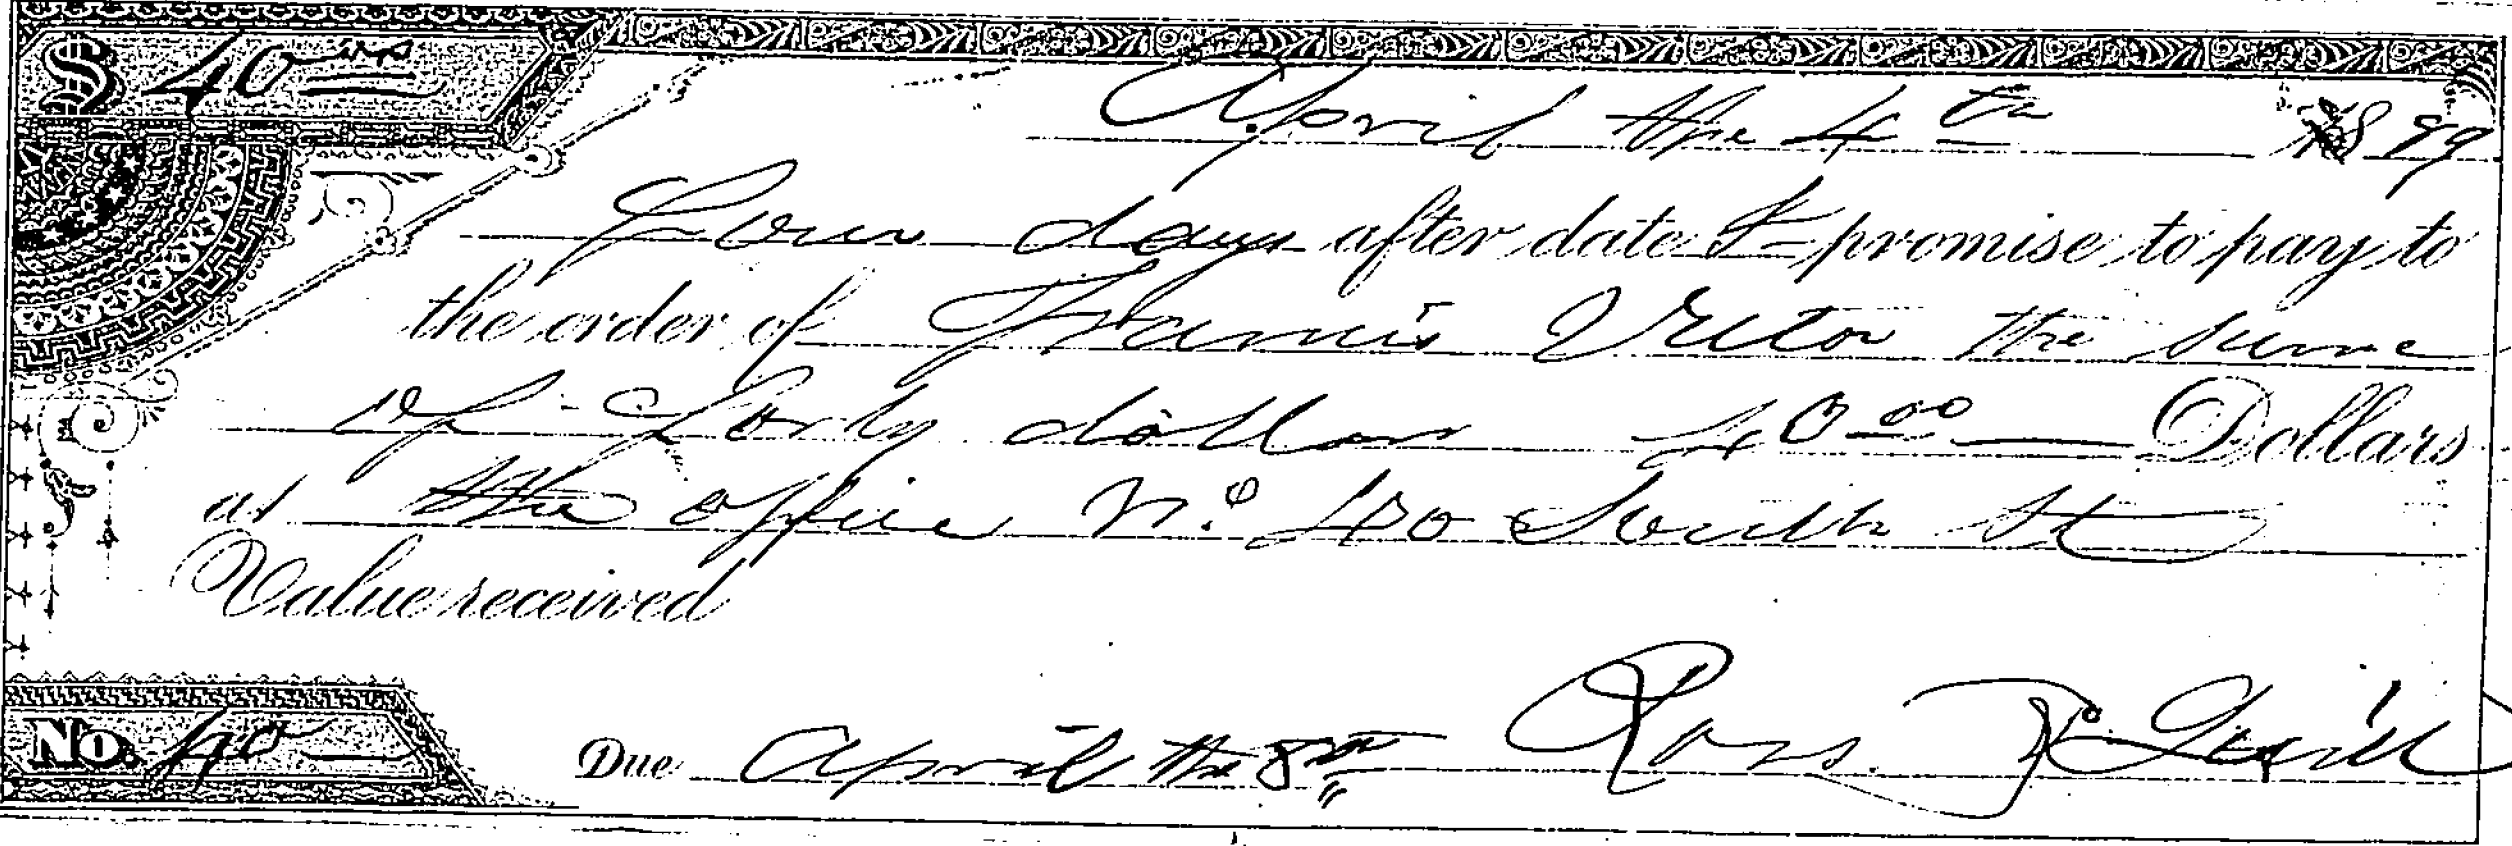 $ 40
April the 4th 1899
Four days after date I promise to pay to
the order of Francis the sume
of Forty dollars 40 00 Dollars
at the office No. 40 South St
Value received
No. 40
Due April the 8th